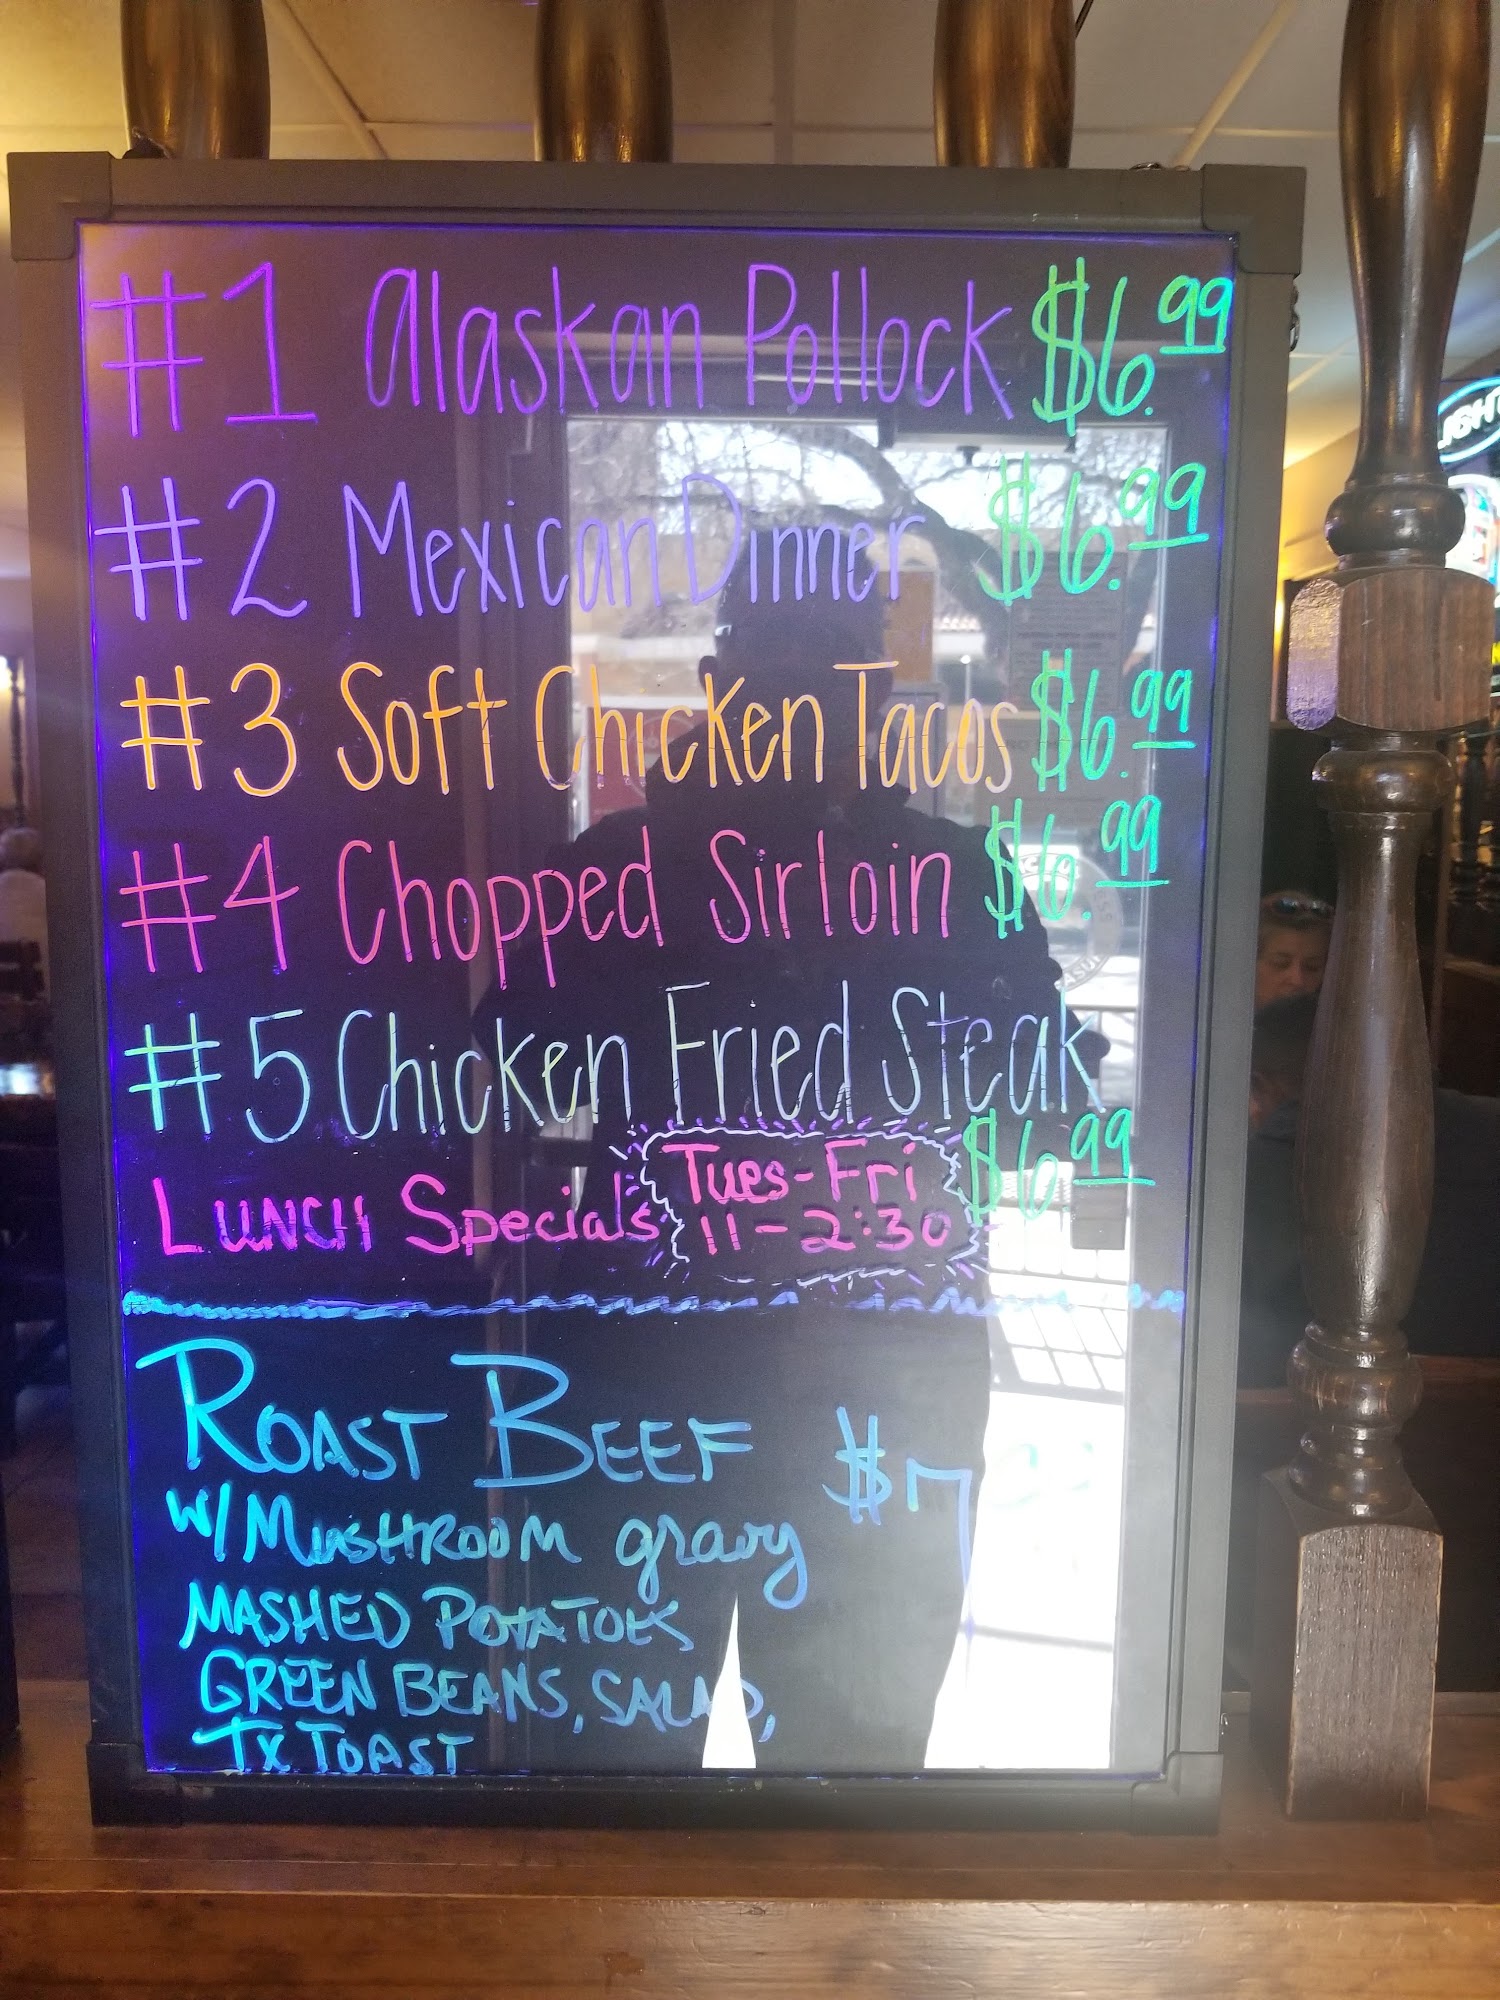 #1 Alaskan Pollock $6.99
#2 Mexican Dinner $6.99
#3 Soft Chicken Tacos $6.99
#4 Chopped Sirloin $6.99
#5 Chicken Fried Steak
$6.99
Lunch Specials Tues-Fri
11-2:30
Roast Beef
w/ Mushroom gravy $7
Mashed Potatoes
Green Beans, Salad,
Tx Toast